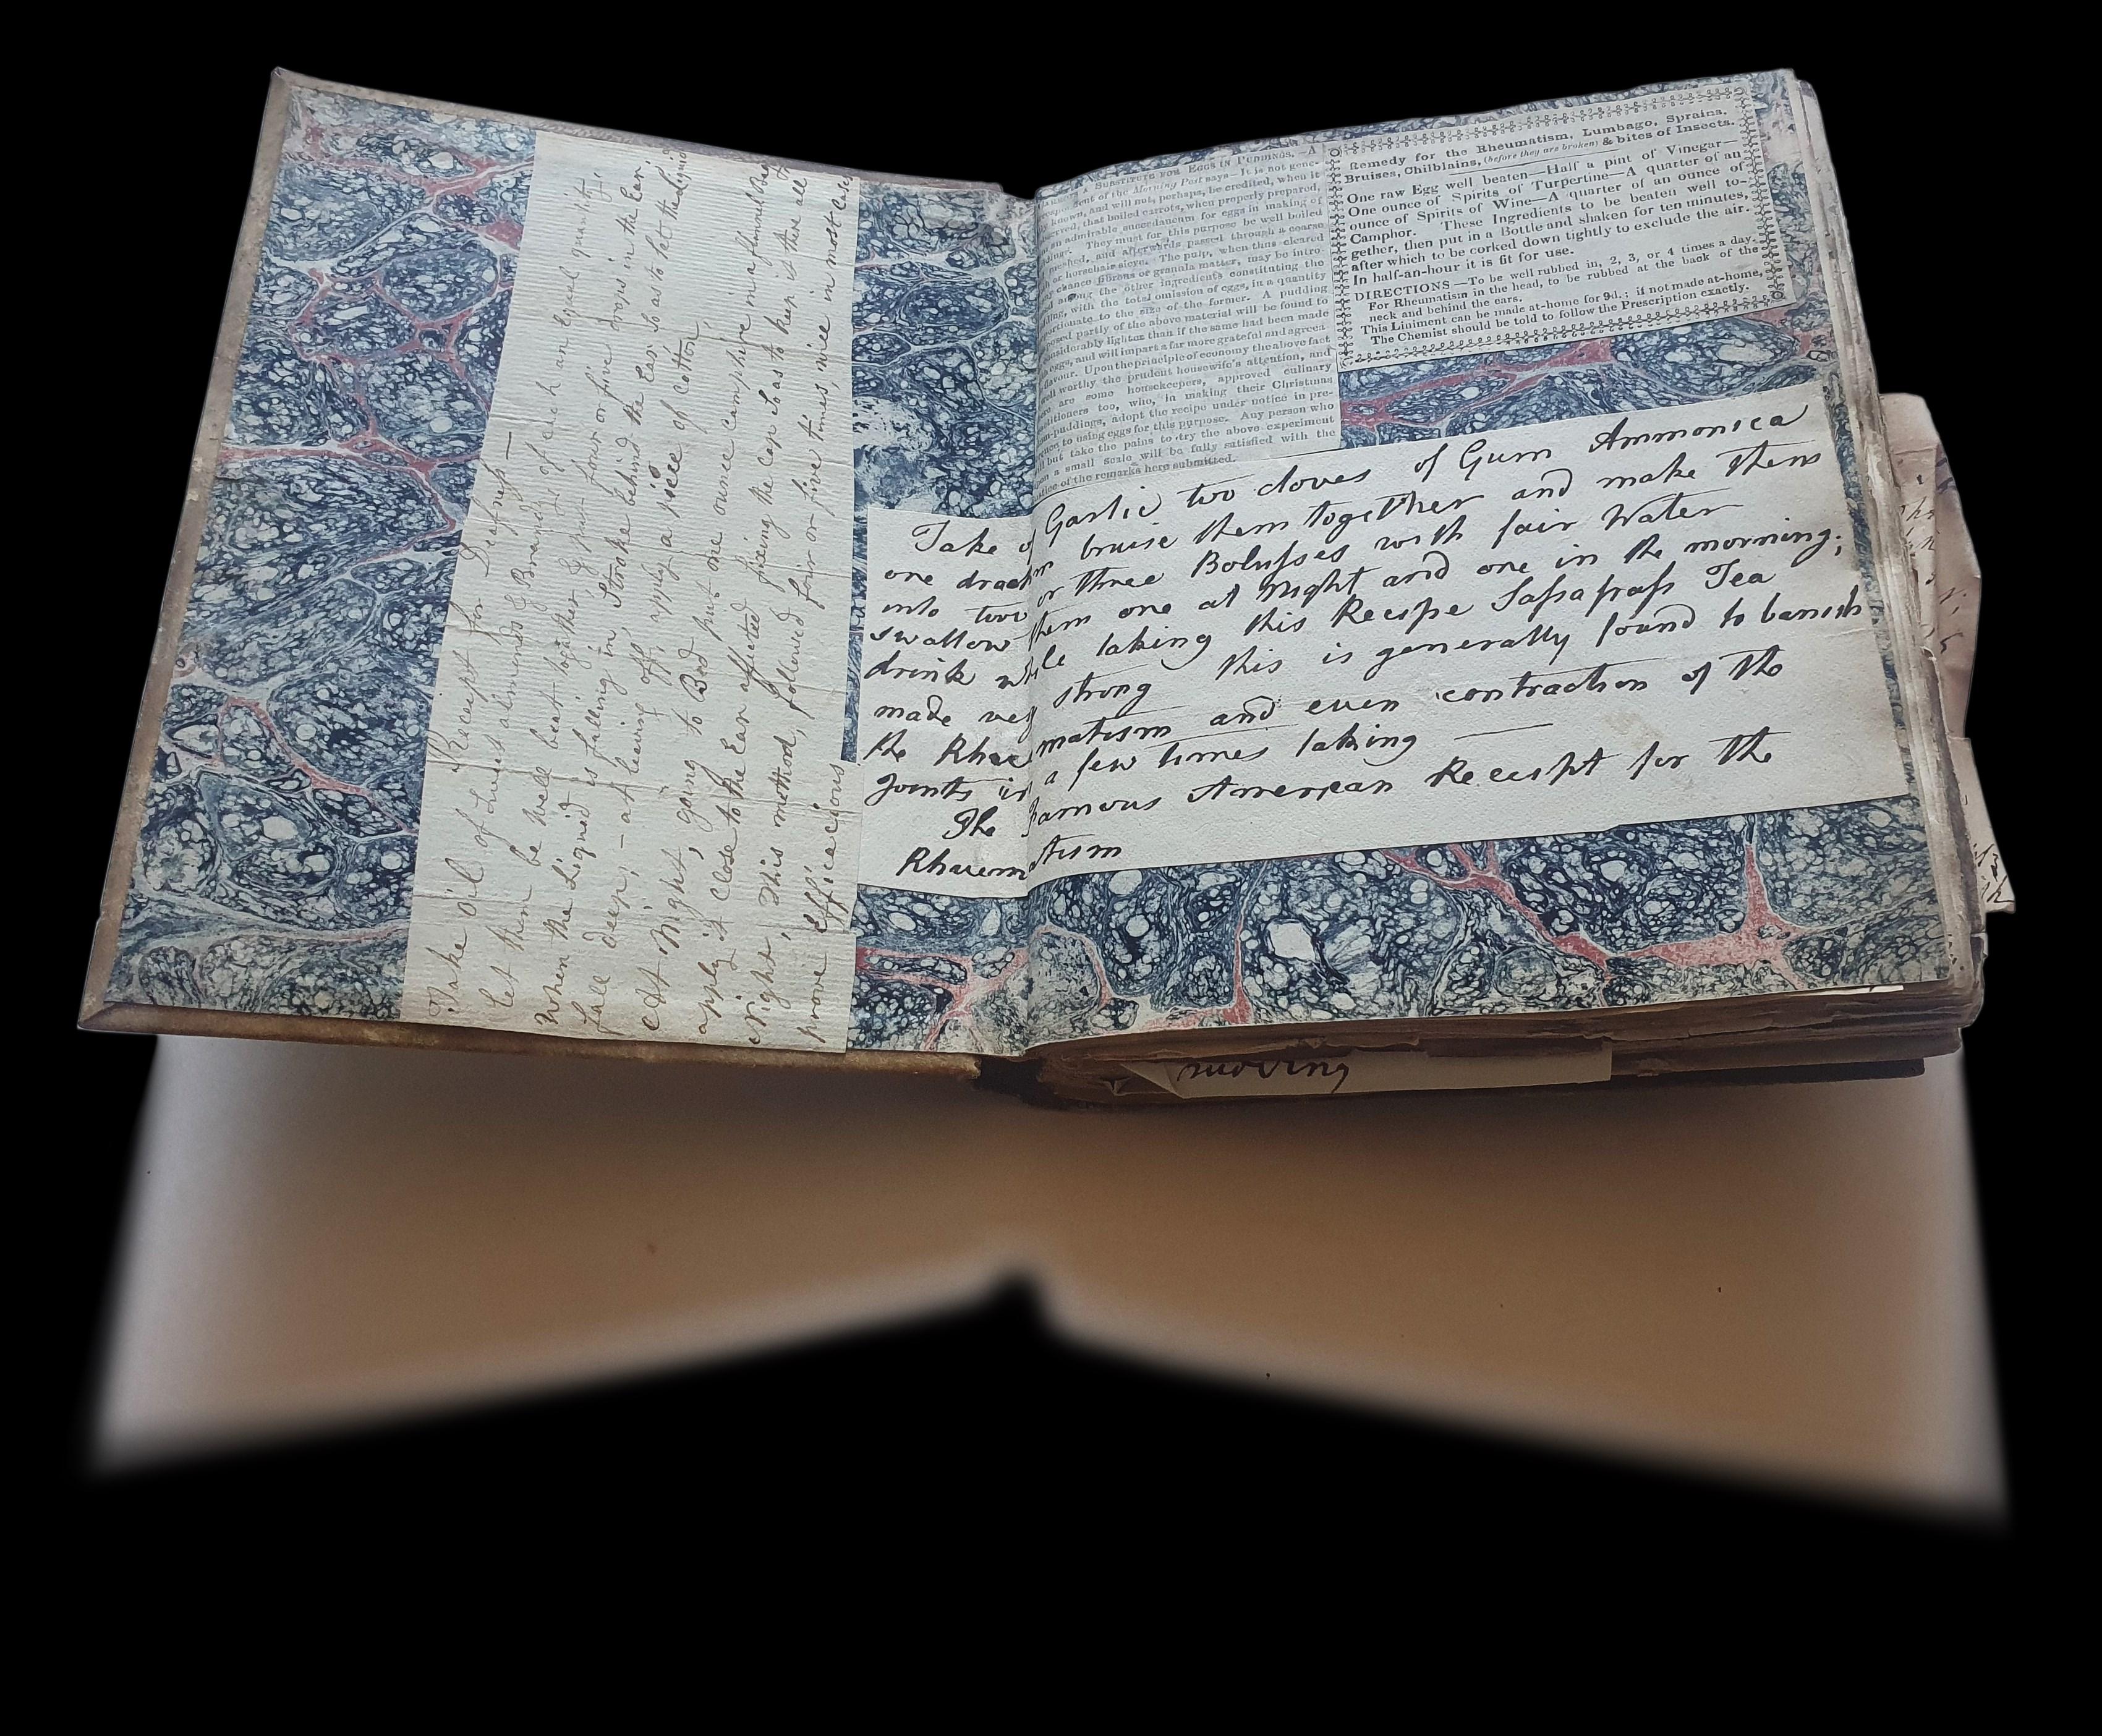 Receipt for Deafness —
Take oil of sweet almonds & Brandy of each an Equal quantity,
let them be well beat together, & put four or five drops in the Ear,
when the Liquid is falling in, Stroke behind the Ear So as to let the liquid
fall deep, — at leaving off, apply a piece of Cotton,
At Night, going to Bed put one ounce Camphire in a flannel Bag
apply it Close to the Ear affected fixing the Cap So as to keep it there all
Night, This method, followed four or five times, will in most Cases
prove Efficacious
A SUBSTITUTE FOR EGGS IN PUDDINGS.—A
of the Morning Post says—It is not gene-
known, and will not, perhaps, be credited, when it
that boiled carrots, when properly prepared,
an admirable succedaneum for eggs in making of
They must for this purpose be well boiled
and afterwards passed through a coarse
or horsehair sieve. The pulp, when thus cleared
chance fibrous or granula matter, may be intro-
among the other ingredients constituting the
with the total omission of eggs, in a quantity
to the size of the former. A pudding
partly of the above material will be found to
lighter than if the same had been made
eggs, and will impart a far more grateful and agreea
flavour. Upon the principle of economy the above fact
worthy the prudent housewife's attention, and
are some housekeepers, approved culinary
too, who, in making their Christmas
puddings, adopt the recipe under notice in pre-
to using eggs for this purpose. Any person who
but take the pains to try the above experiment
a small scale will be fully satisfied with the
of the remarks here submitted.
Remedy for the Rheumatism, Lumbago, Sprains,
Bruises, Chilblains, (before they are broken) & bites of Insects.
One raw Egg well beaten—Half a pint of Vinegar—
One ounce of Spirits of Turpertine—A quarter of an
ounce of Spirits of Wine—A quarter of an ounce of
Camphor. These Ingredients to be beaten well to-
gether, then put in a Bottle and shaken for ten minutes,
after which to be corked down tightly to exclude the air.
In half-an-hour it is fit for use.
DIRECTIONS.—To be well rubbed in, 2, 3, or 4 times a day.
For Rheumatism in the head, to be rubbed at the back of the
neck and behind the ears.
This Liniment can be made at-home for 9d.; if not made at-home,
The Chemist should be told to follow the Prescription exactly.
Take of Garlic two cloves of Gum Ammonica
one drachm bruise them together and make them
into two or three Bolusses with fair Water
swallow them one at Night and one in the morning;
drink while taking this Recipe Sassafrass Tea
made very strong this is generally found to banish
the Rhuematism and even contraction of the
Joints in a few times taking —
The Famous American Receipt for the
Rhuematism
moving